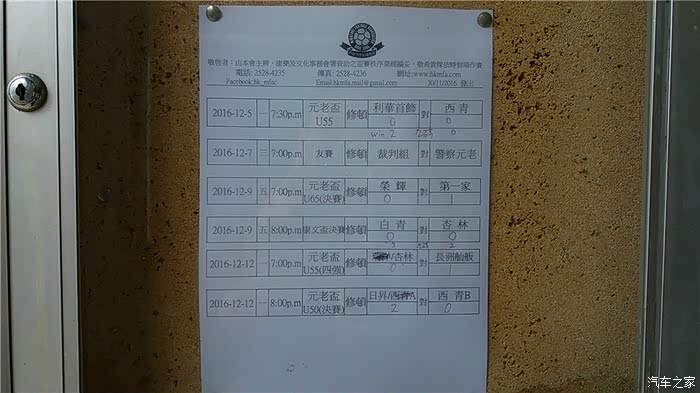 敬啓者:由本會主辦,康樂及文化事務會署資助之盃賽秩序業經編妥,敬希貴隊依時到場作賽
電話: 2528-4235 傳真: 2528-4236 網址:www.hkmfa.com
Facebook:hk_mfac Email:hkmfa.mail@gmail.com 30/11/2016 發出
2016-12-5 一 7:30p.m 元老盃 U55 修頓 利華首飾 對 西青
0 0
win 2 0
2016-12-7 三 7:00p.m 友賽 修頓 裁判組 對 警察元老
2016-12-9 五 7:00p.m 元老盃 U65(決賽) 修頓 榮輝 對 第一家
0 1
2016-12-9 五 8:00p.m 康文盃決賽 修頓 白青 對 杏林
0 0
2
2016-12-12 一 7:00p.m 元老盃 U55(四強) 修頓 /杏林 對 長洲舢舨
0 1
2016-12-12 一 8:00p.m 元老盃 U50(決賽) 修頓 日昇/西青A 對 西青B
2 0
汽车之家